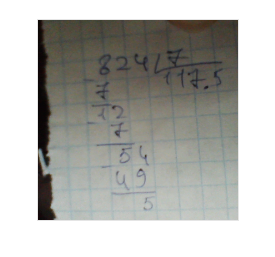 824 7
7 117.5
12
7
54
49
5